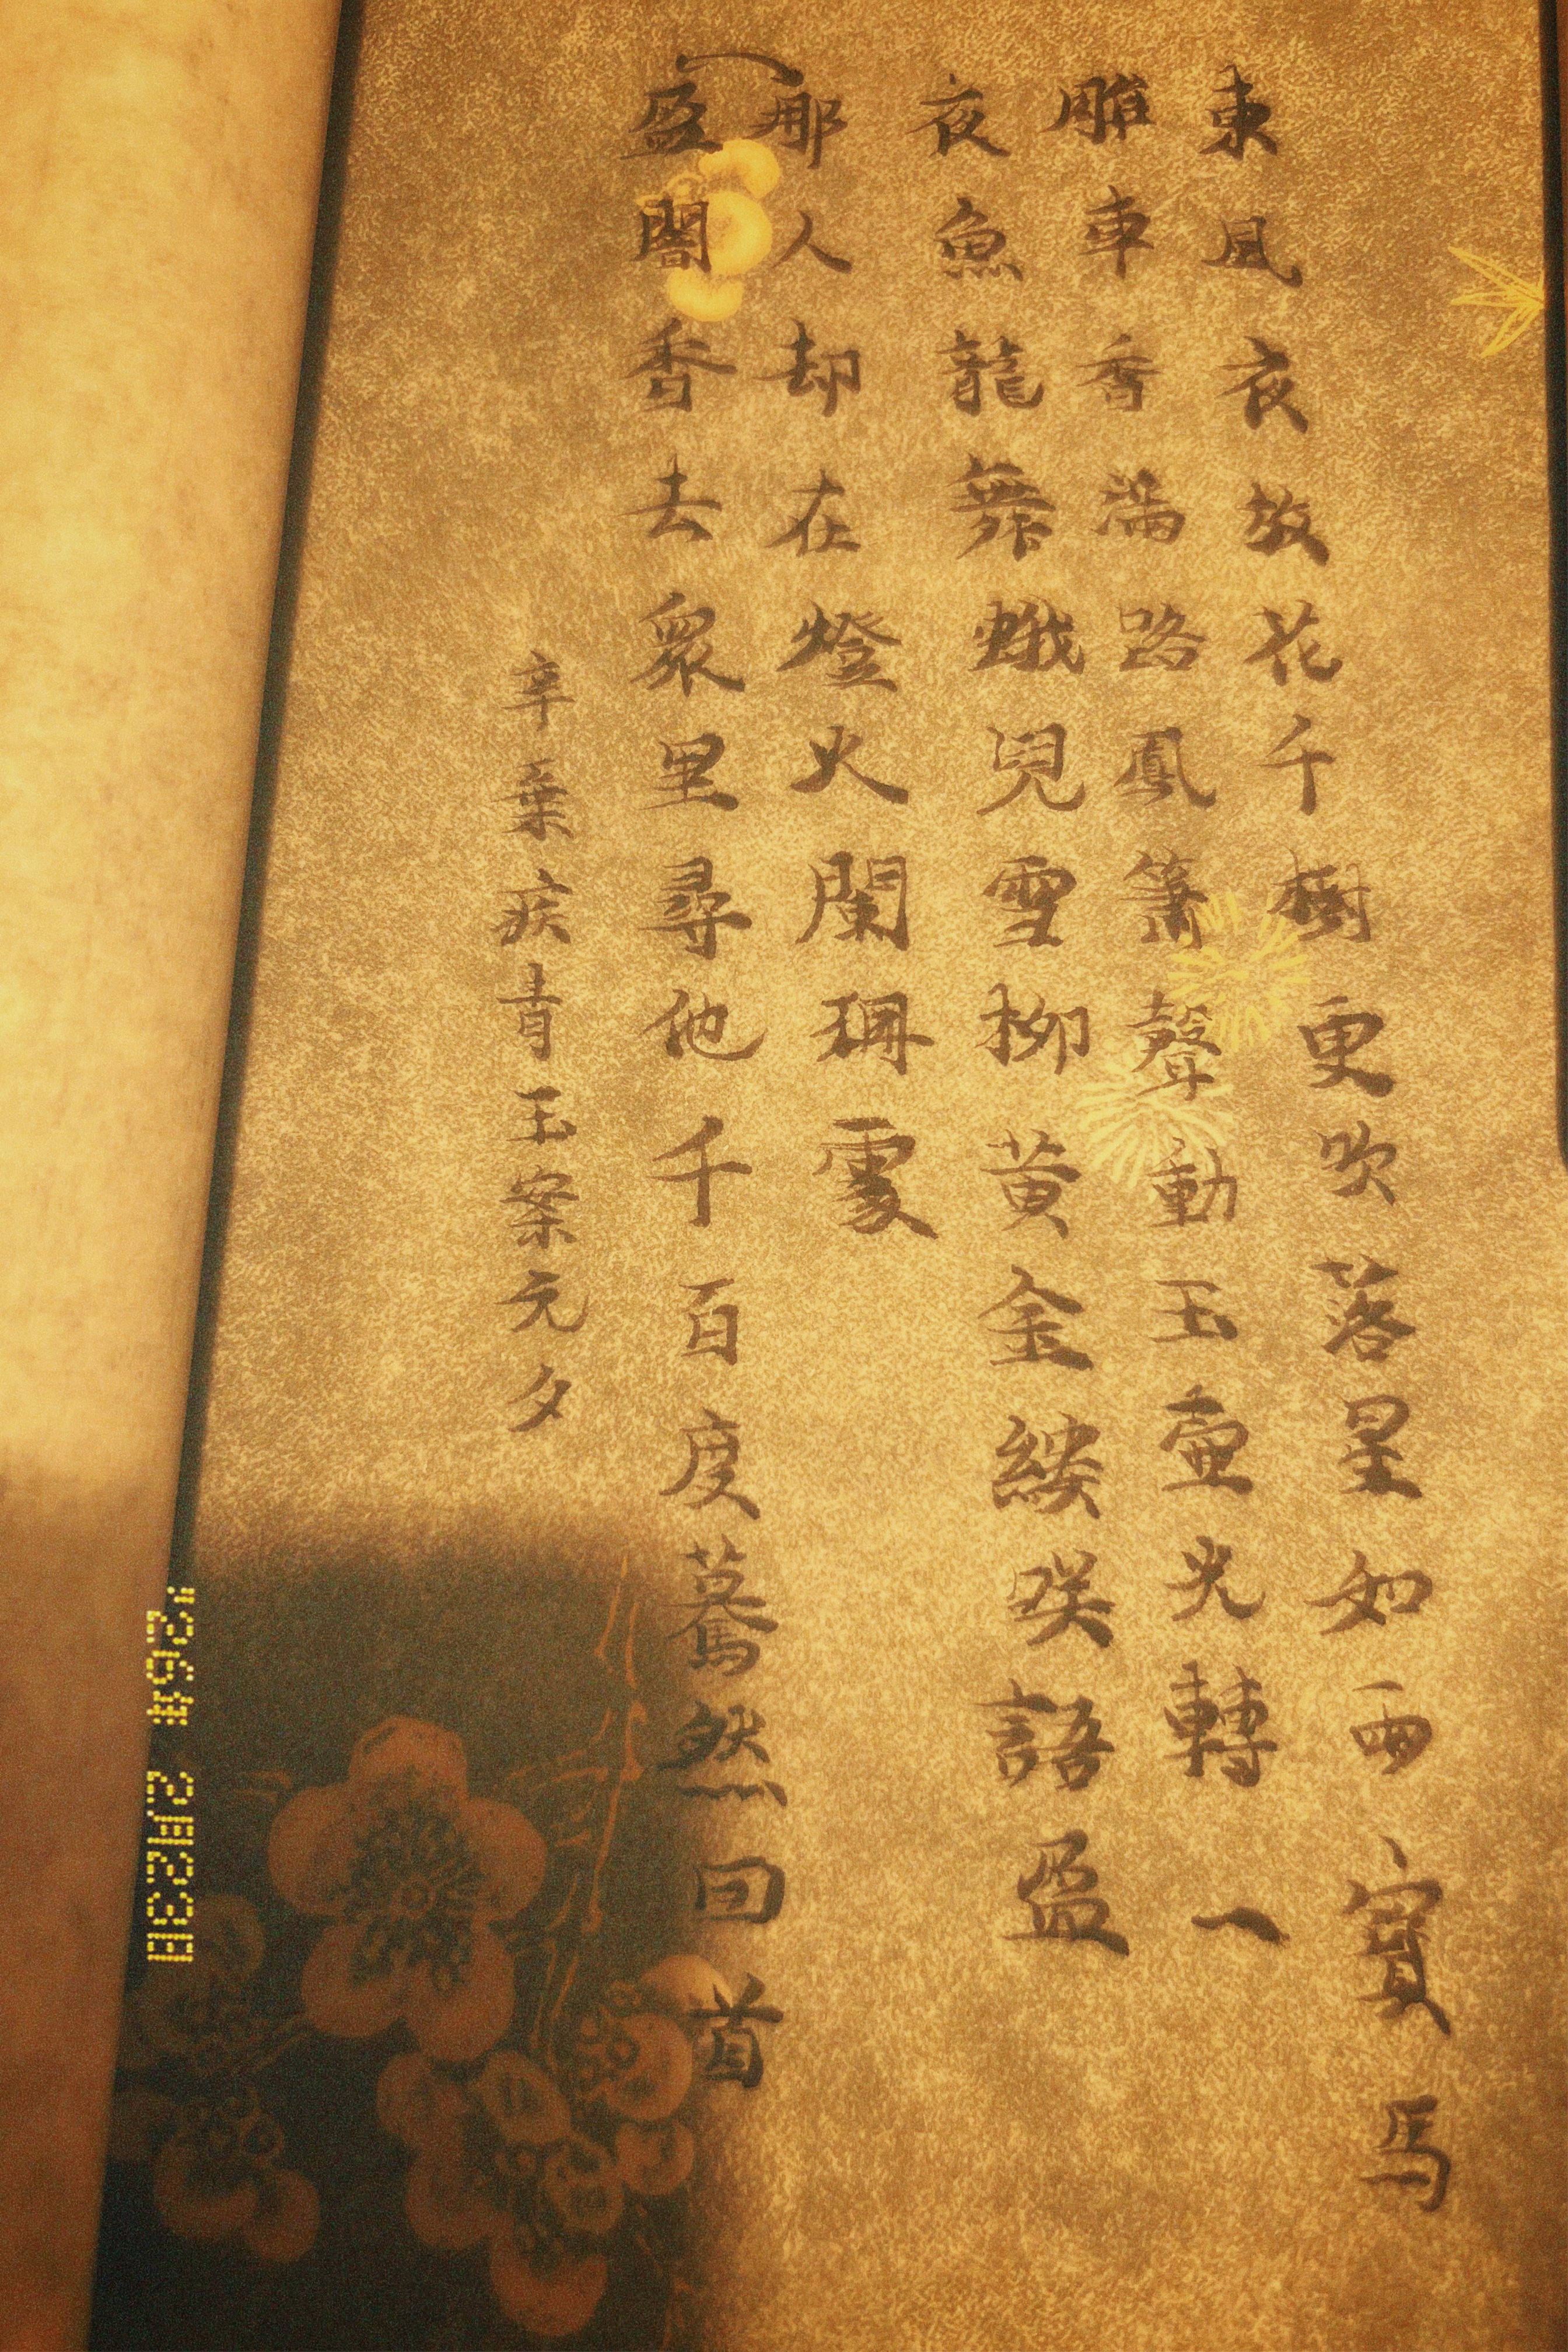 東風夜放花千樹更吹落星如雨寶馬
雕車香滿路鳳簫聲動玉壺光轉一
夜魚龍舞蛾兒雪柳黄金縷咲語盈
那人却在燈火闌珊處
盈闇香去眾里尋他千百度驀然回首
辛棄疾青玉案元夕
'26年 2月23日